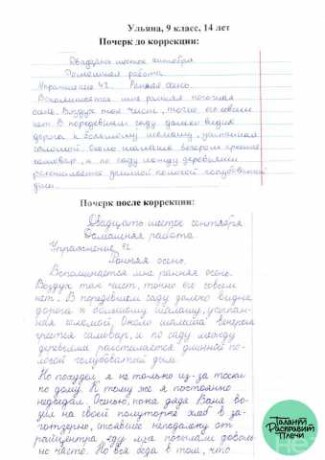 Ульяна, 9 класс, 14 лет
Почерк до коррекции:
Двадцать шестое октября
Домашняя работа
Упражнение 42. Ранняя осень.
Вспоминается мне ранняя погожая
осень. Воздух так чист, точно его совсем
нет. В поредевшем саду далеко видна
дорога к большому шалашу, усыпанная
соломой. Около шалаша вечером греется
самовар, и по саду между деревьями
расстилается длинной полосой голубоватый
дым.
Почерк после коррекции:
Двадцать шестое сентября
Домашняя работа
Упражнение 42
Ранняя осень.
Вспоминается мне ранняя осень.
Воздух так чист, точно его совсем
нет. В поредевшем саду далеко видна
дорога к большому шалашу, усыпан-
ная соломой. Около шалаша вечером
греется самовар, и по саду между
деревьями расстилается длинной по-
лосой голубоватый дым.
Но похудел я не только из-за тоски
по дому. К тому же я постоянно
недоедал. Осенью, пока дядя Ваня во-
зил на своей полуторке хлеб в за-
готзерно, стоявшее неподалёку от
райцентра, еду мне посылали доволь-
но часто. Но вся беда в том, что
Талант
Расправит
Плечи